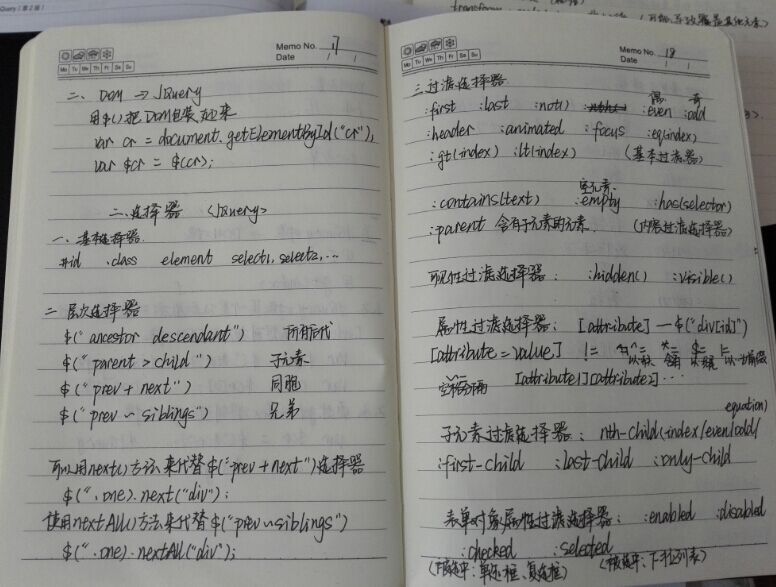 Query(第2版)
Memo No. 17
Date / /
Mo Tu We Th Fr Sa Su
二、DOM → JQuery
用$()把DOM包装起来
var cr = document.getElementById("cr");
var $cr = $(cr);
二、选择器 <JQuery>
一、基本选择器
#id .class element select1, select2,...
二 层次选择器
$("ancestor descendant") 所有后代
$("parent > child") 子元素
$("prev + next") 同胞
$("prev ~ siblings") 兄弟
可以用next()方法来代替$("prev + next")选择器
$(".one).next("div");
使用nextAll()方法来代替$("prev ~ siblings")
$(".one).nextAll("div");
Memo No. 18
Date / /
Mo Tu We Th Fr Sa Su
三.过滤选择器
偶 奇
:first :last :not() :even :odd
:header :animated :focus :eq(index)
:gt(index) :lt(index) (基本过滤器)
空元素
:contains(text) :empty :has(selector)
:parent 含有子元素的元素. (内容过滤选择器)
可见性过滤选择器: :hidden() :visible()
属性过滤选择器: [attribute] — $("div[id]")
[attribute = value] != ^= *= $= |=
空格分隔 [attribute1][attribute2]...
equation)
子元素过滤选择器: nth-child(index/even/odd/
:first-child :last-child :only-child
表单对象属性过滤选择器: :enabled :disabled
:checked :selected
(被选中:单选框、复选框) (被选中:下拉列表)